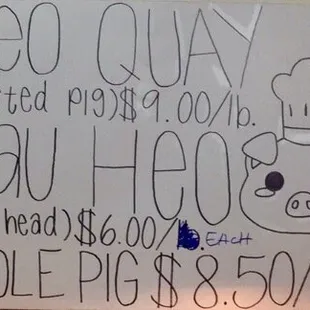 eo QUAY
ted pig) $9.00/lb.
au Heo
head) $6.00/ EACH
OLE PIG $8.50/